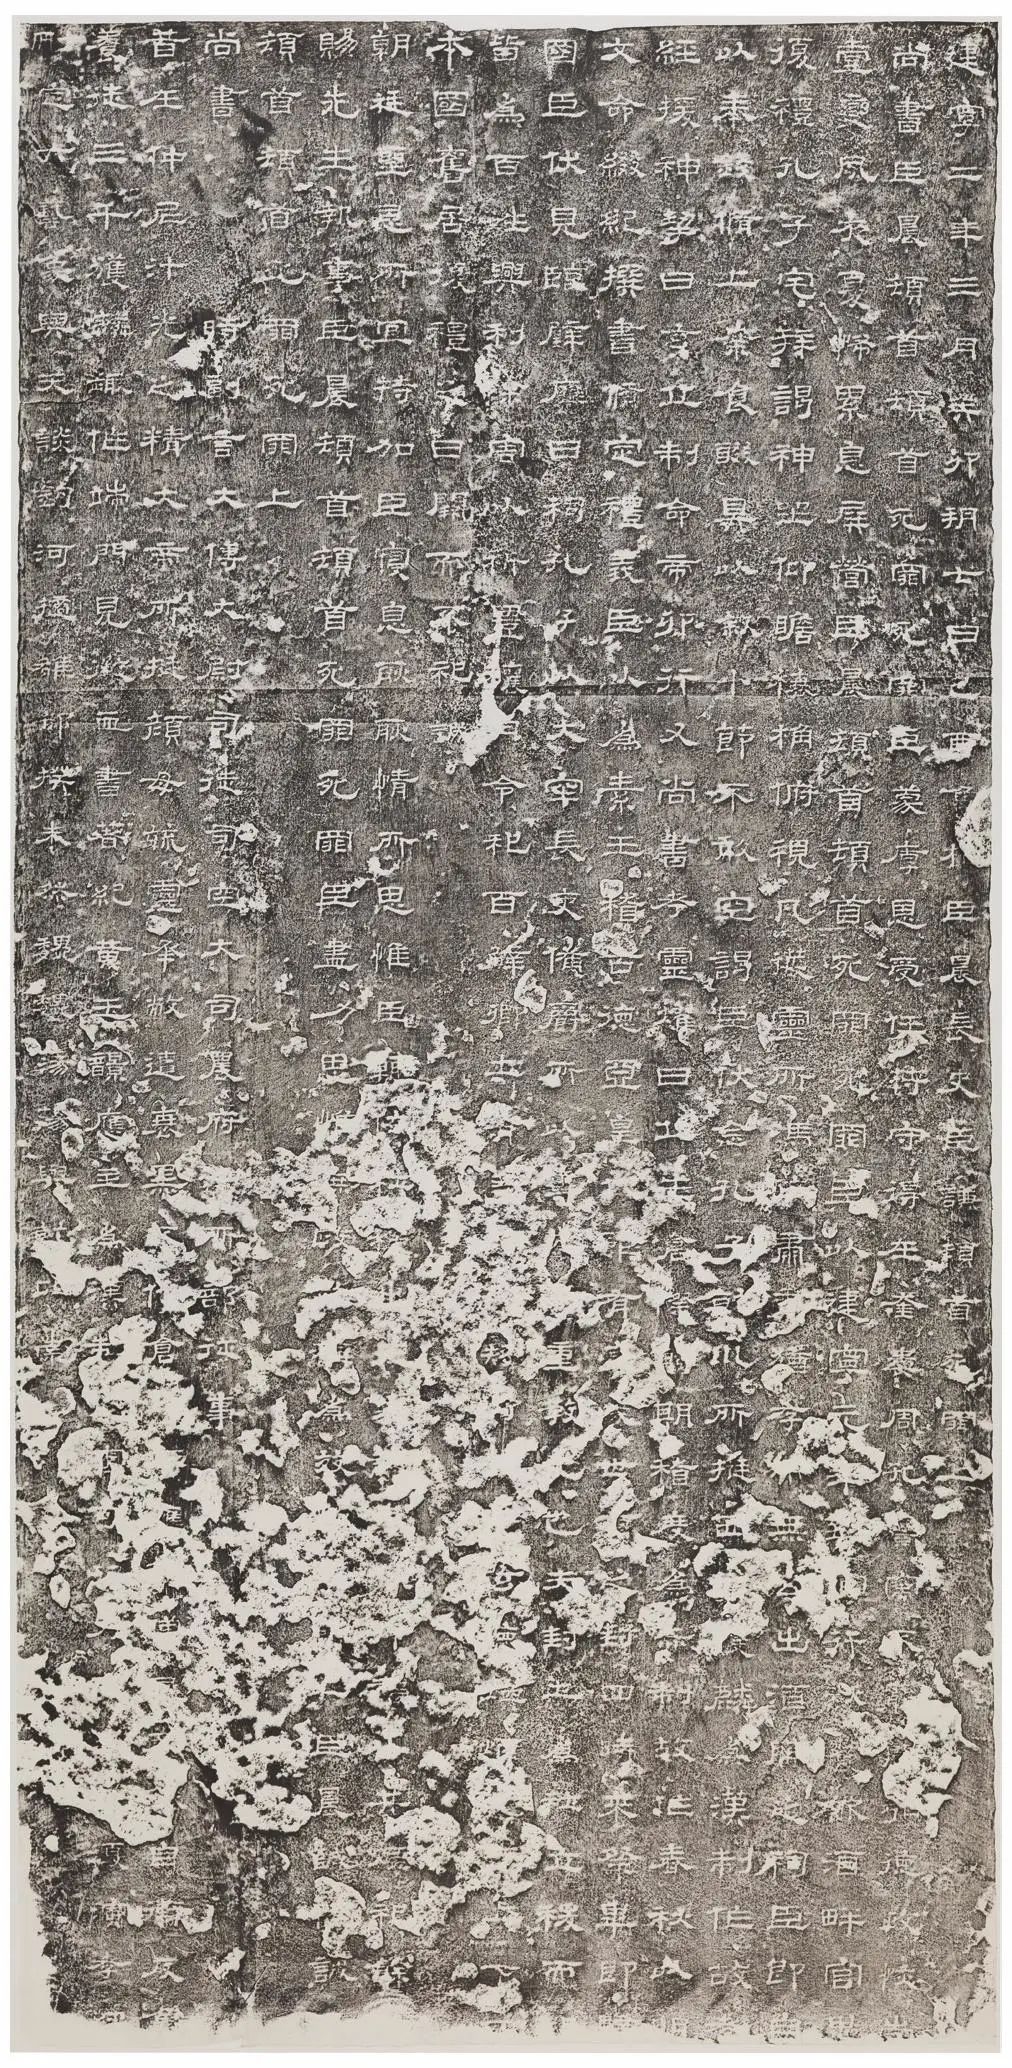 建寧二年三月癸卯朔七日己酉魯相臣晨長史臣謙頓首死罪上
尚書臣晨頓首頓首死罪死罪臣蒙厚恩受任符守得在奎婁周孔舊寓不能弘德政恢崇
壹變夙夜憂怖累息屏營臣晨頓首頓首死罪死罪臣以建寧元年到官行秋饗飲酒畔宮畢
復禮孔子宅拜謁神坐仰瞻榱桷俯視几筵靈所馮依肅肅猶存而無公出酒脯之祠臣即自
以奉錢脩上案食醊具以敘小節不敢空謁臣伏念孔子乾坤所挺西狩獲麟為漢制作故孝
經援神挈曰玄丘制命帝卯行又尚書考靈燿曰丘生倉際觸期稽度為赤制故作春秋以明
文命綴紀撰書脩定禮義臣以為素王稽古德亞皇代雖有褒成世享之封四時來祭畢即歸
國臣伏見臨辟雍日祠孔子以大牢長吏備爵所以尊先師重教化也夫封土為社立稷而祀
皆為百姓興利除害以祈豐穰月令祀百辟卿士有益於民矧乃孔子玄德煥炳光於上下而
本國舊居復禮之日闕而不祀誠
朝廷聖恩所宜特加臣寢息耿耿情所思惟臣輒依社稷出王家穀春秋行禮以共煙祀餘
賜先生執事臣晨頓首頓首死罪死罪臣盡力思惟庶政報稱為效增異輒上臣晨誠惶誠恐
頓首頓首死罪死罪上
尚書
時副言大傅大尉司徒司空大司農府治所部從事
昔在仲尼汁光之精大帝所挺顏母毓靈承敝遭衰黑不代倉應聘自衛反魯
養徒三千獲麟趣作端門見徵血書著紀黃玉韻應主為漢制道審可行復演孝經
刪定六藝象與天談鉤河擿雒卻揆未然魏魏蕩蕩與乾比崇